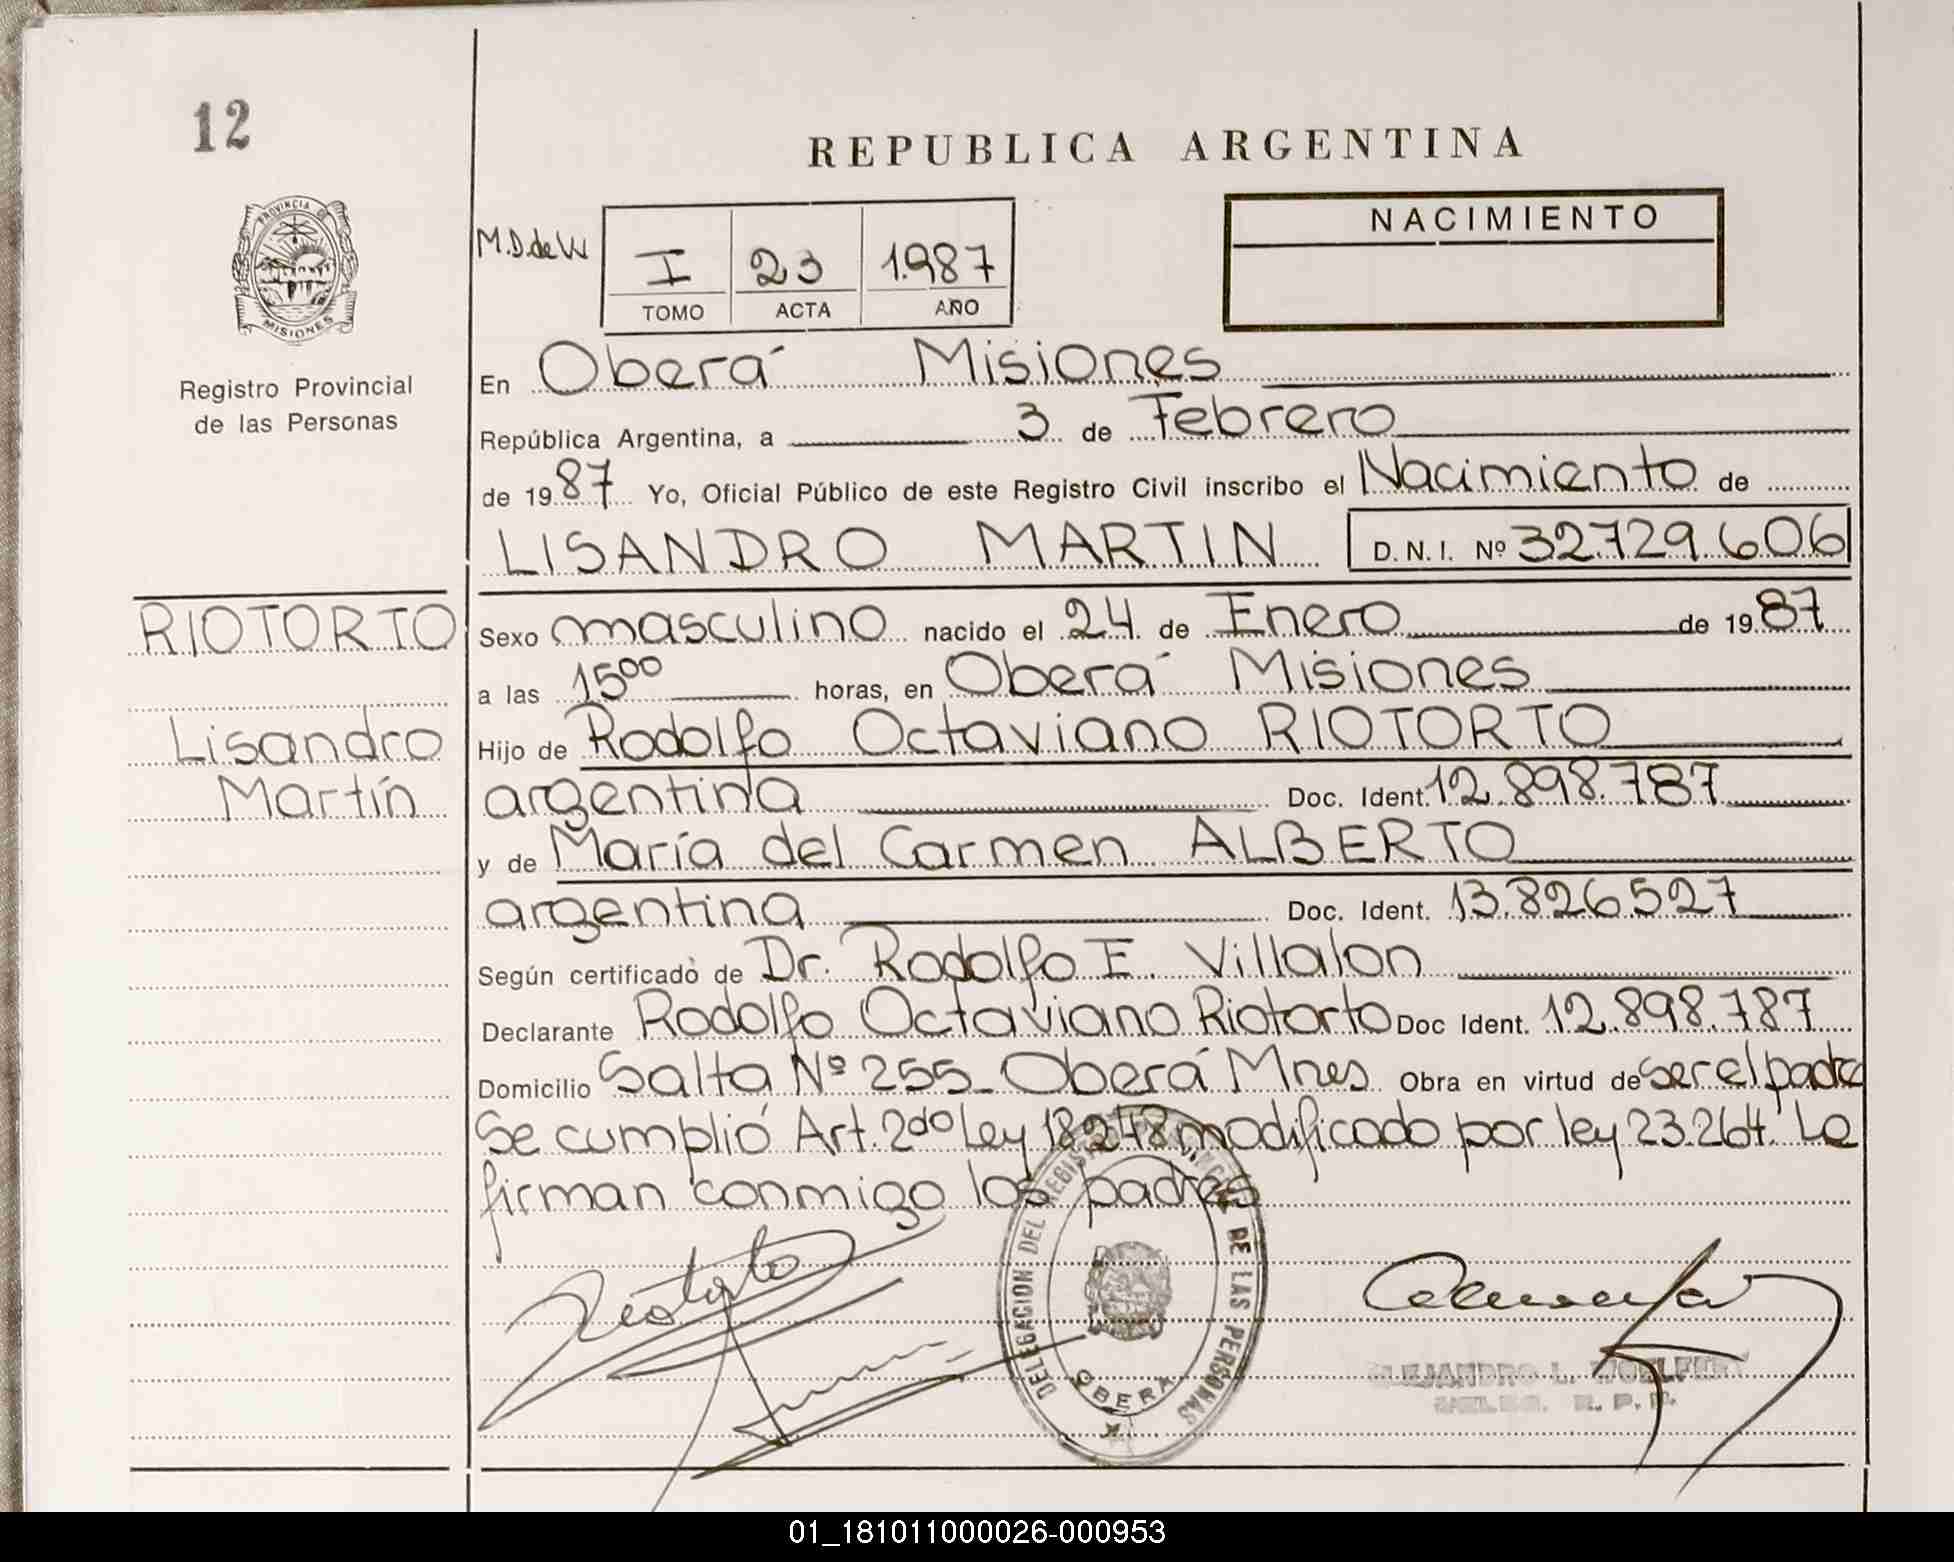 12
REPUBLICA ARGENTINA
PROVINCIA DE
MISIONES
Registro Provincial
de las Personas
M.D.de W
I 23 1.987
TOMO ACTA AÑO
NACIMIENTO
En Oberá Misiones
República Argentina, a 3 de Febrero
de 1987 Yo, Oficial Público de este Registro Civil inscribo el Nacimiento de
LISANDRO MARTIN D.N.I. Nº 32.729.606
RIOTORTO
Lisandro
Martín
Sexo masculino nacido el 24 de Enero de 1987
a las 15⁰⁰ horas, en Oberá Misiones
Hijo de Rodolfo Octaviano RIOTORTO
argentina Doc. Ident. 12.898.787
y de María del Carmen ALBERTO
argentina Doc. Ident. 13.826.527
Según certificado de Dr. Rodolfo E. Villalon
Declarante Rodolfo Octaviano Riotorto Doc Ident. 12.898.787
Domicilio Salta Nº 255_ Oberá Mnes Obra en virtud de ser el padre
Se cumplió Art. 2do Ley 18248 modificado por ley 23.264. La
firman conmigo los padres
Riotorto
DELEGACION DEL REGISTRO PROVINCIAL DE LAS PERSONAS
OBERA
ALEJANDRO L.
R. P. P.
01_181011000026-000953